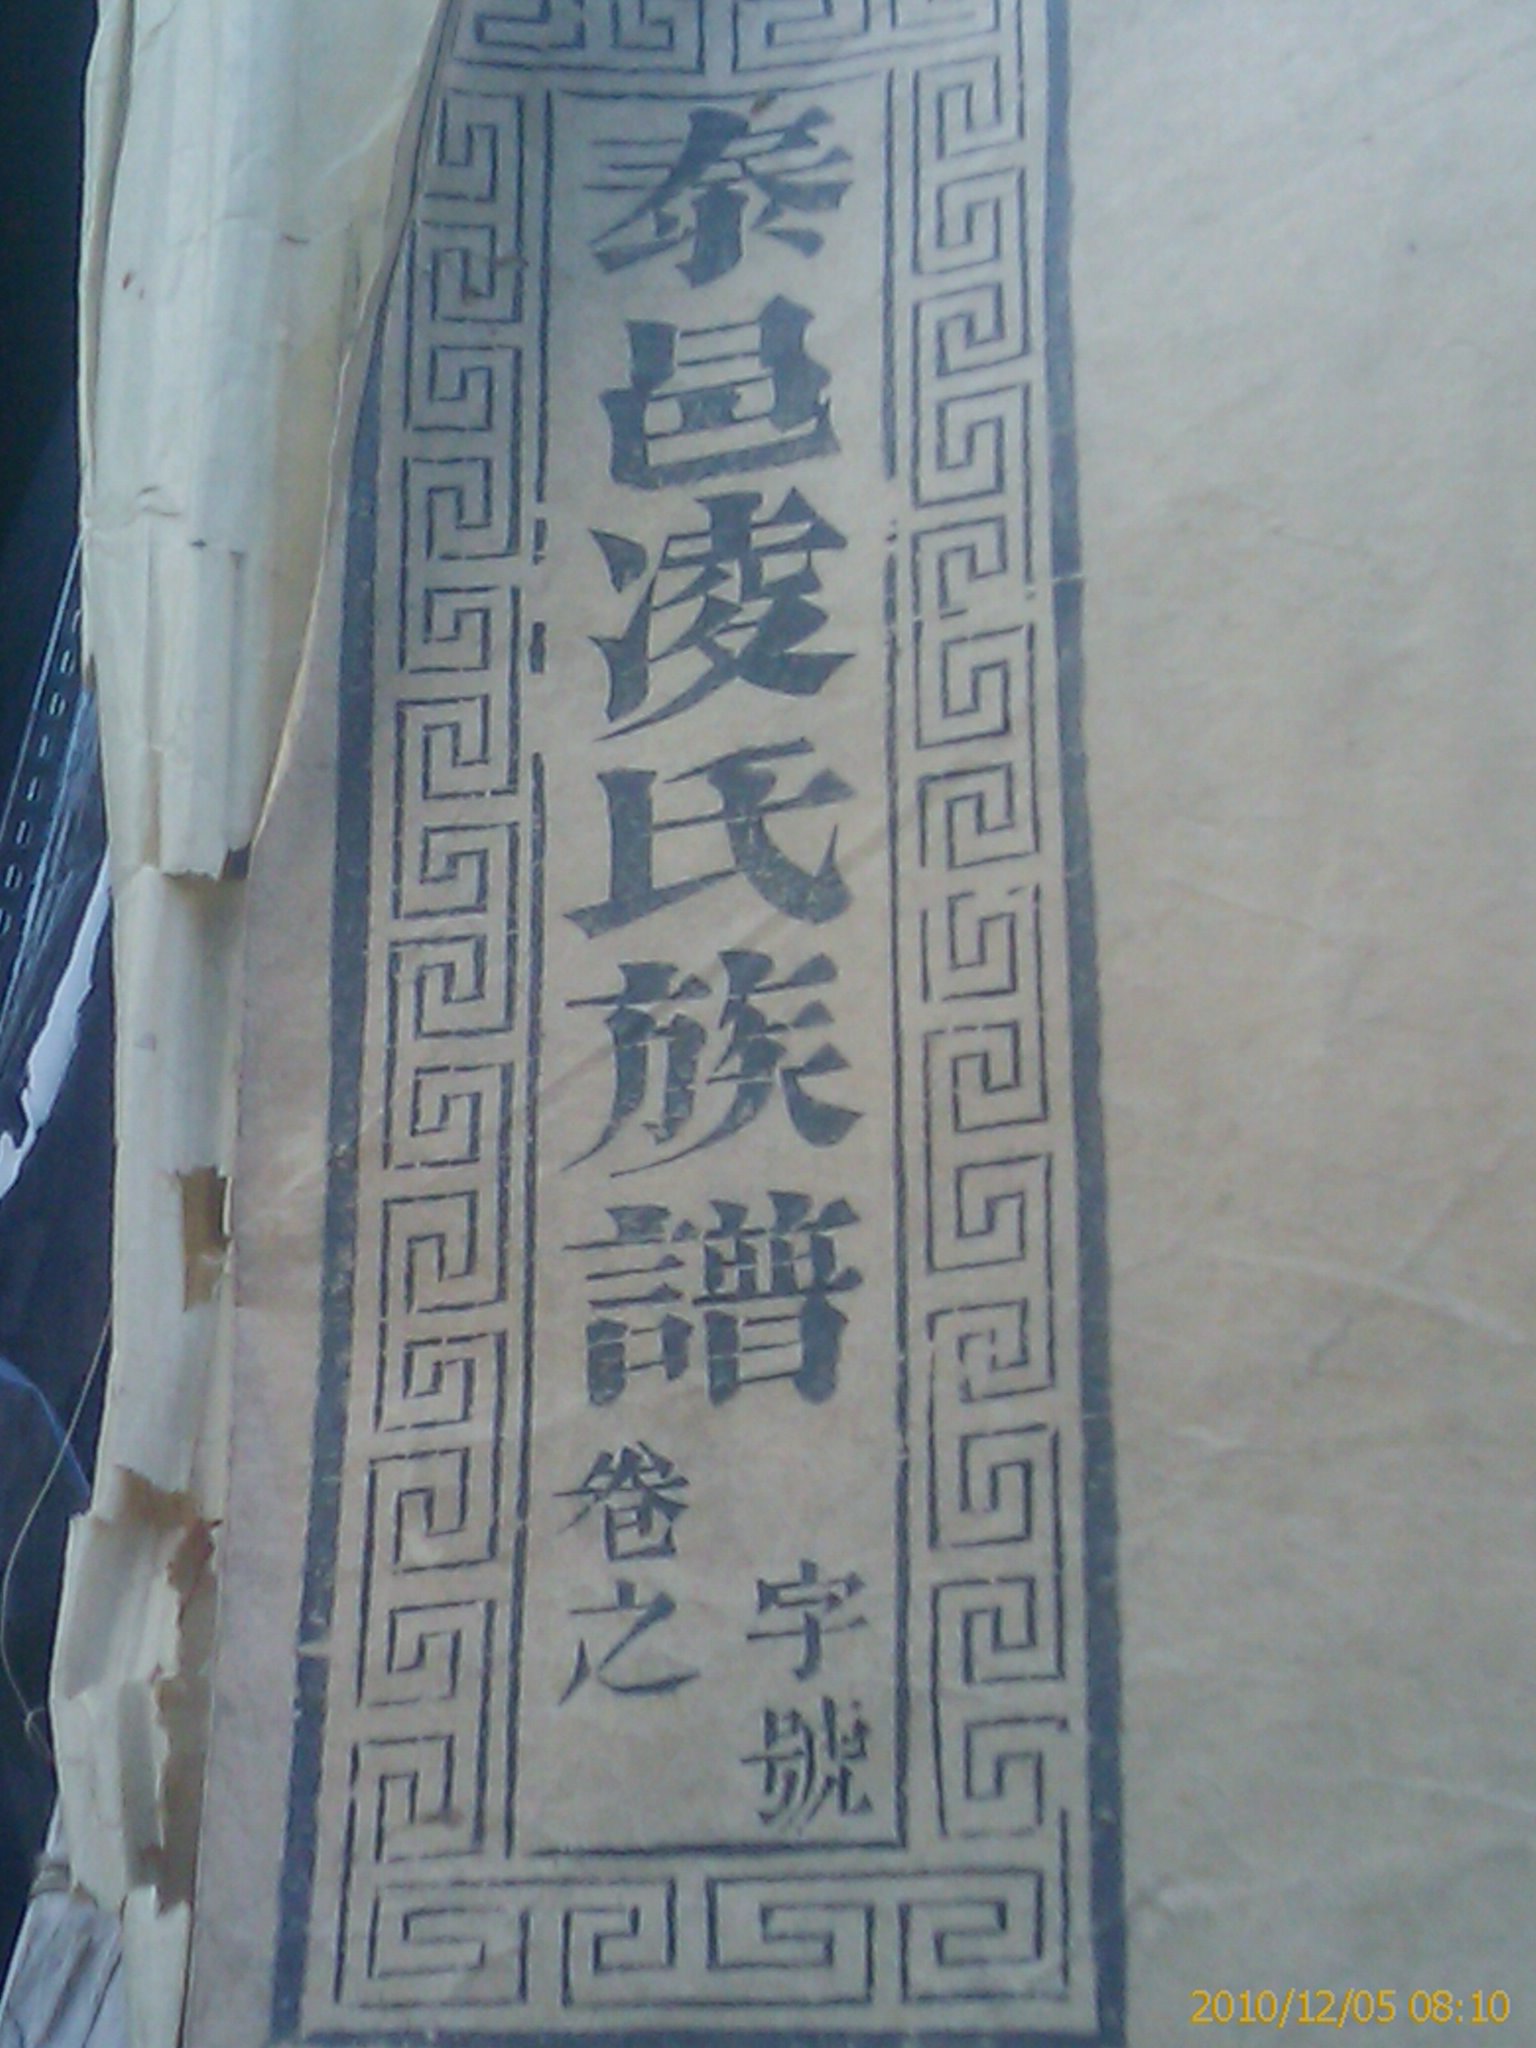 泰邑凌氏族譜
字號
卷之
2010/12/05 08:10